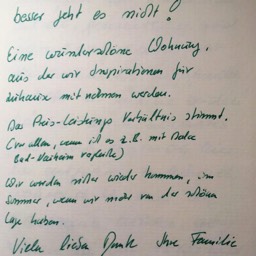 besser geht es nicht!
Eine wunderschöne Wohnung,
aus der wir Inspirationen für
zuhause mit nehmen werden.
Das Preis-Leistungs Verhältnis stimmt.
(vor allem, wenn ich es z.B. mit
vergleiche)
Wir werden sicher wieder kommen, im
Sommer, wenn wir mehr von der schönen
Lage haben.
Vielen lieben Dank Ihre Familie